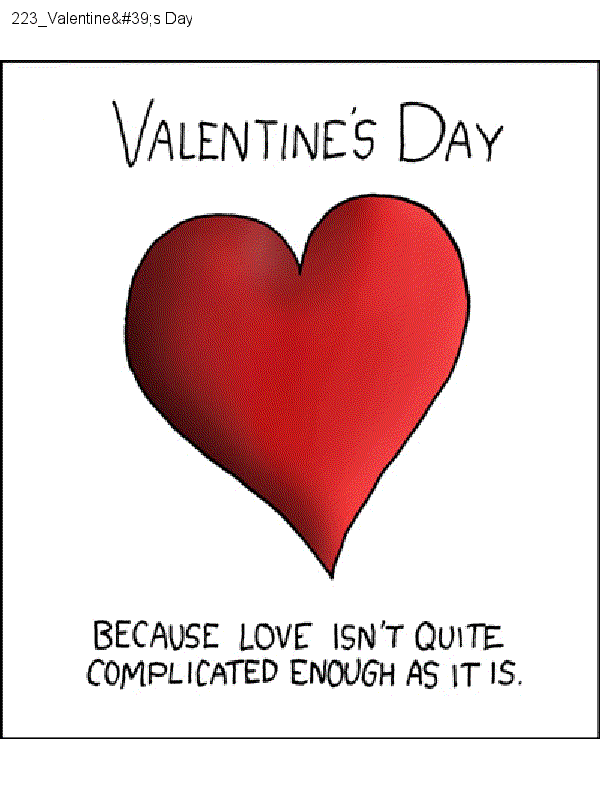 223_Valentine&#39;s Day
VALENTINE'S DAY
BECAUSE LOVE ISN'T QUITE
COMPLICATED ENOUGH AS IT IS.